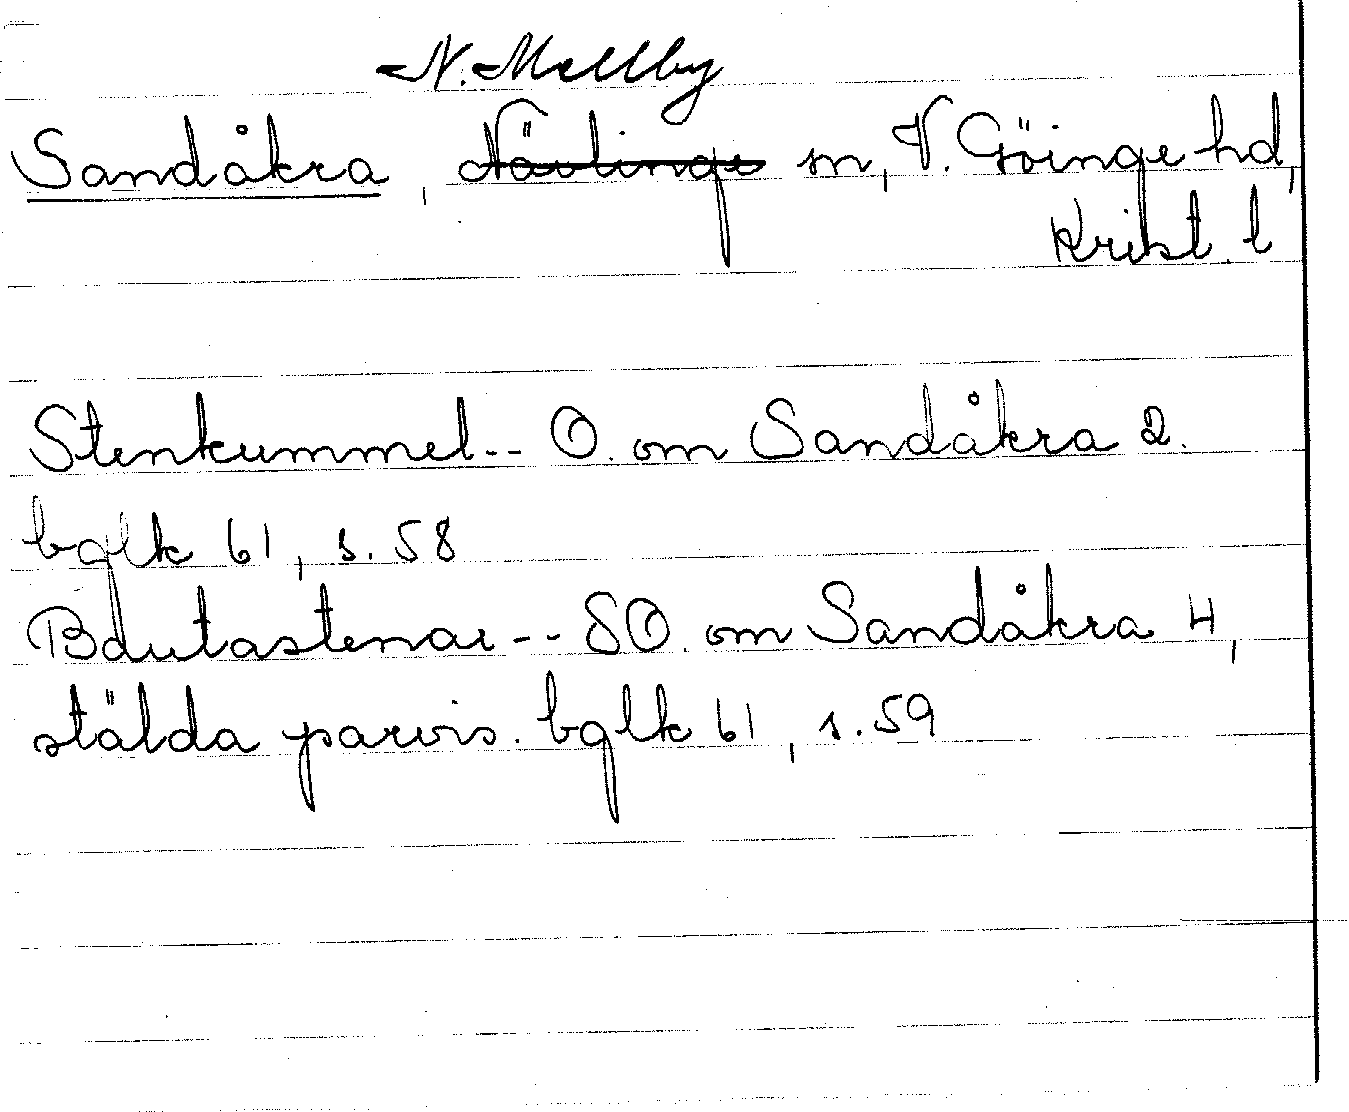 N. Mellby
Sandåkra, Nävlinge sn, V. Göinge hd,
Krist. l
Stenkummel-- O. om Sandåkra 2.
bglk 61, s. 58
Bautastenar -- SO. om Sandåkra 4,
stälda parvis. bglk 61, s. 59